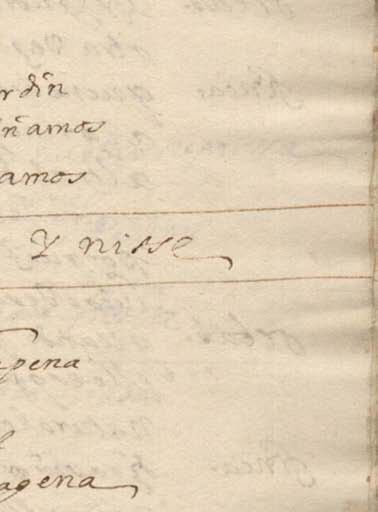 rdín
iñamos
amos
Y nisse
pena
agena